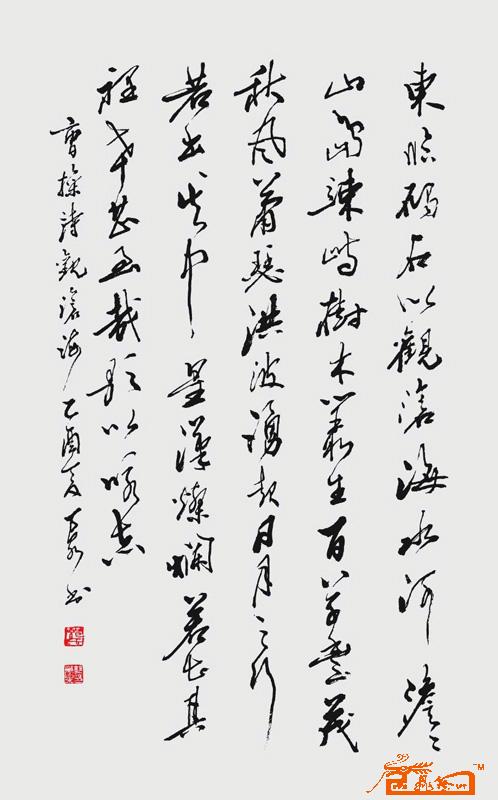 東臨碣石以觀滄海水何澹〻
山島竦峙樹木叢生百草豐茂
秋風蕭瑟洪波湧起日月之行
若出其中星漢燦爛若出其
裡幸甚至哉歌以咏志
曹操詩觀滄海乙酉夏书